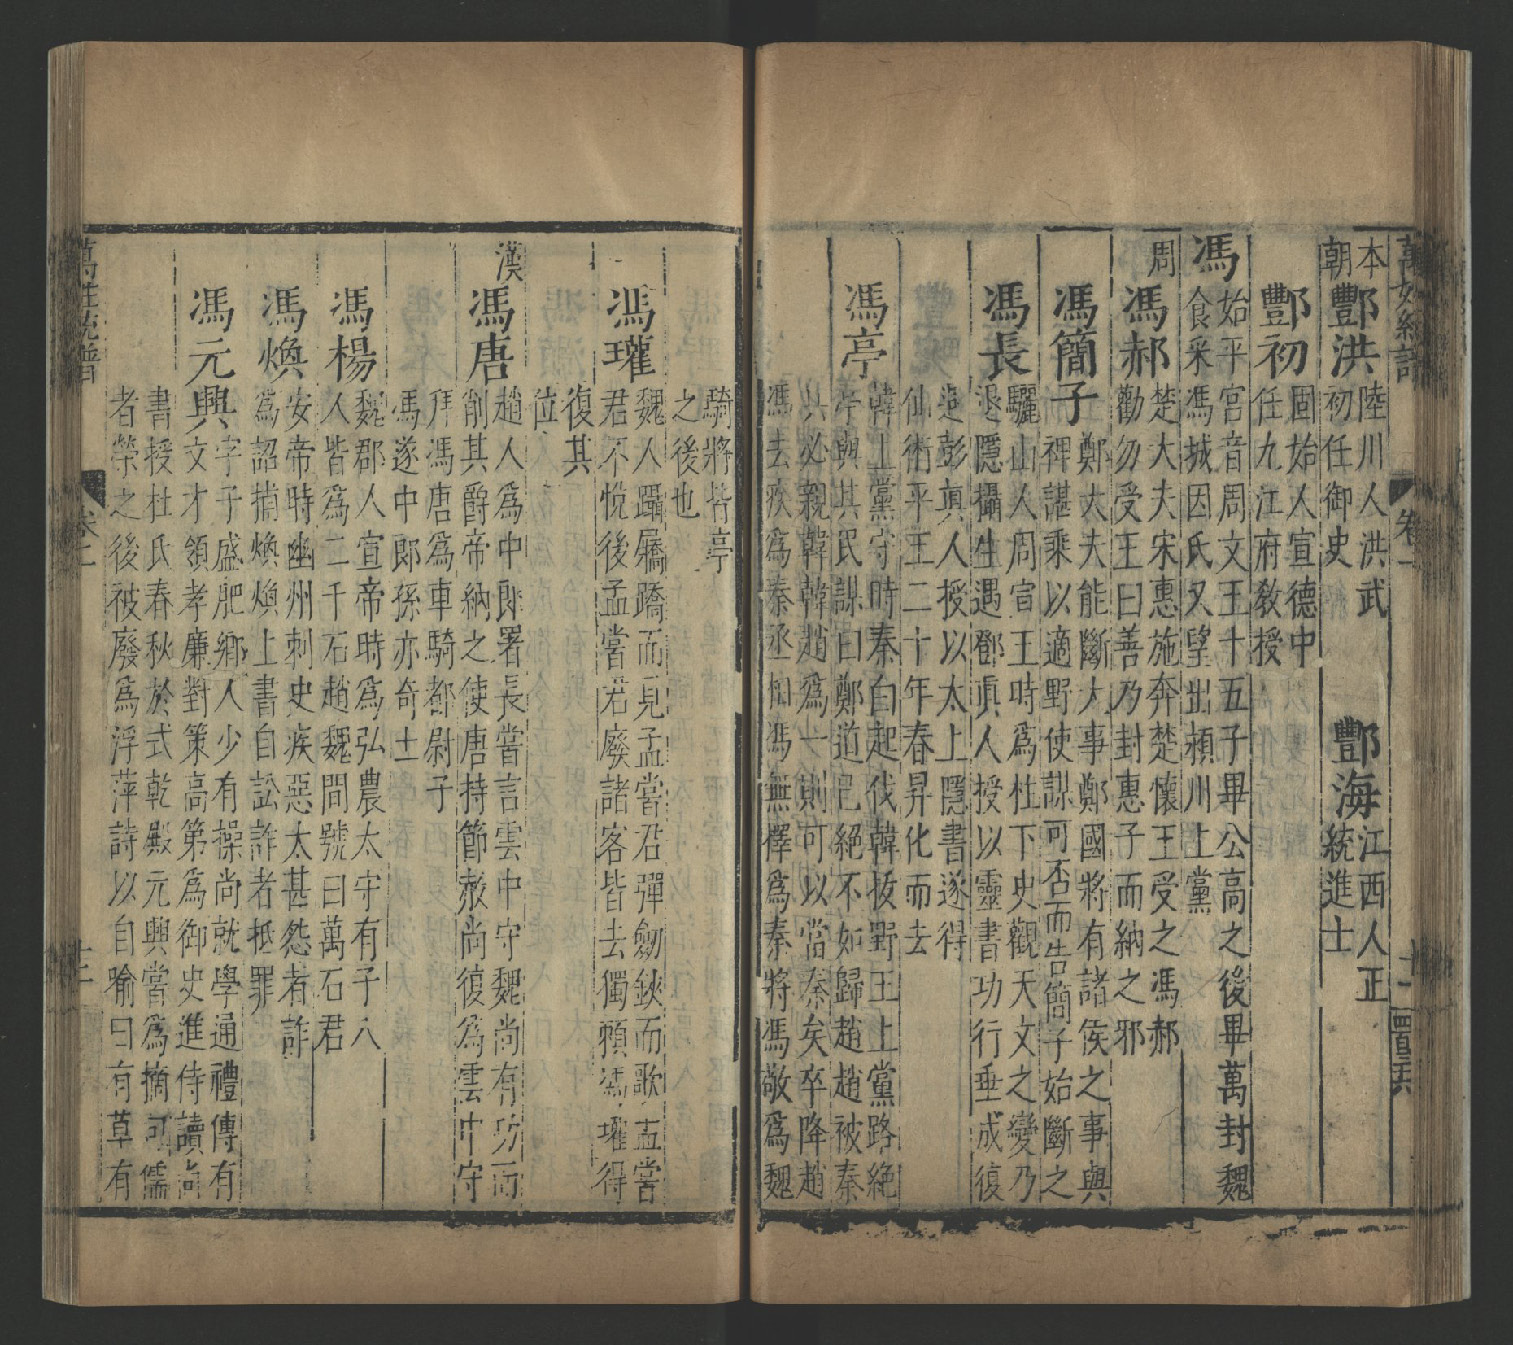 本朝
酆洪
陸川人洪武
初任御史
酆海
江西人正
統進士
酆初
固始人宣德中
任九江府教授
馮
始平宮音周文王十五子畢公高之後畢萬封魏
食采馮城因氏又望出潁川上黨
周
馮郝
楚大夫宋惠施奔楚懷王受之馮郝
勸勿受王曰善乃封惠子而納之邪
馮簡子
鄭大夫能斷大事鄭國將有諸侯之事與
裨諶乘以適野使謀可否而告簡子始斷之
馮長
驪山人周宣王時為柱下史觀天文之變乃
退隱攝生遇鄧真人授以靈書功行垂成復
遇彭真人授以太上隱書遂得
仙術平王二十年春昇化而去
馮亭
韓上黨守時秦白起伐韓拔野王上黨路絕
亭與其民謀曰鄭道已絕不如歸趙趙被秦
兵必親韓韓趙為一則可以當秦矣卒降趙
馮去疾為秦丞相馮無擇為秦將馮敬為魏
騎將皆亭
之後也
馮瓘
魏人躡屩蹻而見孟嘗君彈劒鋏而歌孟嘗
君不悅後孟嘗君廢諸客皆去獨賴馮瓘得
復其
位
漢
馮唐
趙人為中郎署長嘗言雲中守魏尚有功而
削其爵帝納之使唐持節赦尚復為雲中守
拜馮唐為車騎都尉子
馮遂中郎孫亦奇士
馮楊
魏郡人宣帝時為弘農太守有子八
人皆為二千石趙魏間號曰萬石君
馮煥
安帝時幽州刺史疾惡太甚怨者詐
為詔捕煥煥上書自訟詐者抵罪
馮元興
字子盛肥鄉人少有操尚就學通禮傳有
文才領孝廉對策高第為御史進侍讀尚
書授杜氏春秋於式乾殿元興嘗為摘句儒
者榮之後被廢為浮萍詩以自喻曰有草有
萬姓統譜
卷一
十二